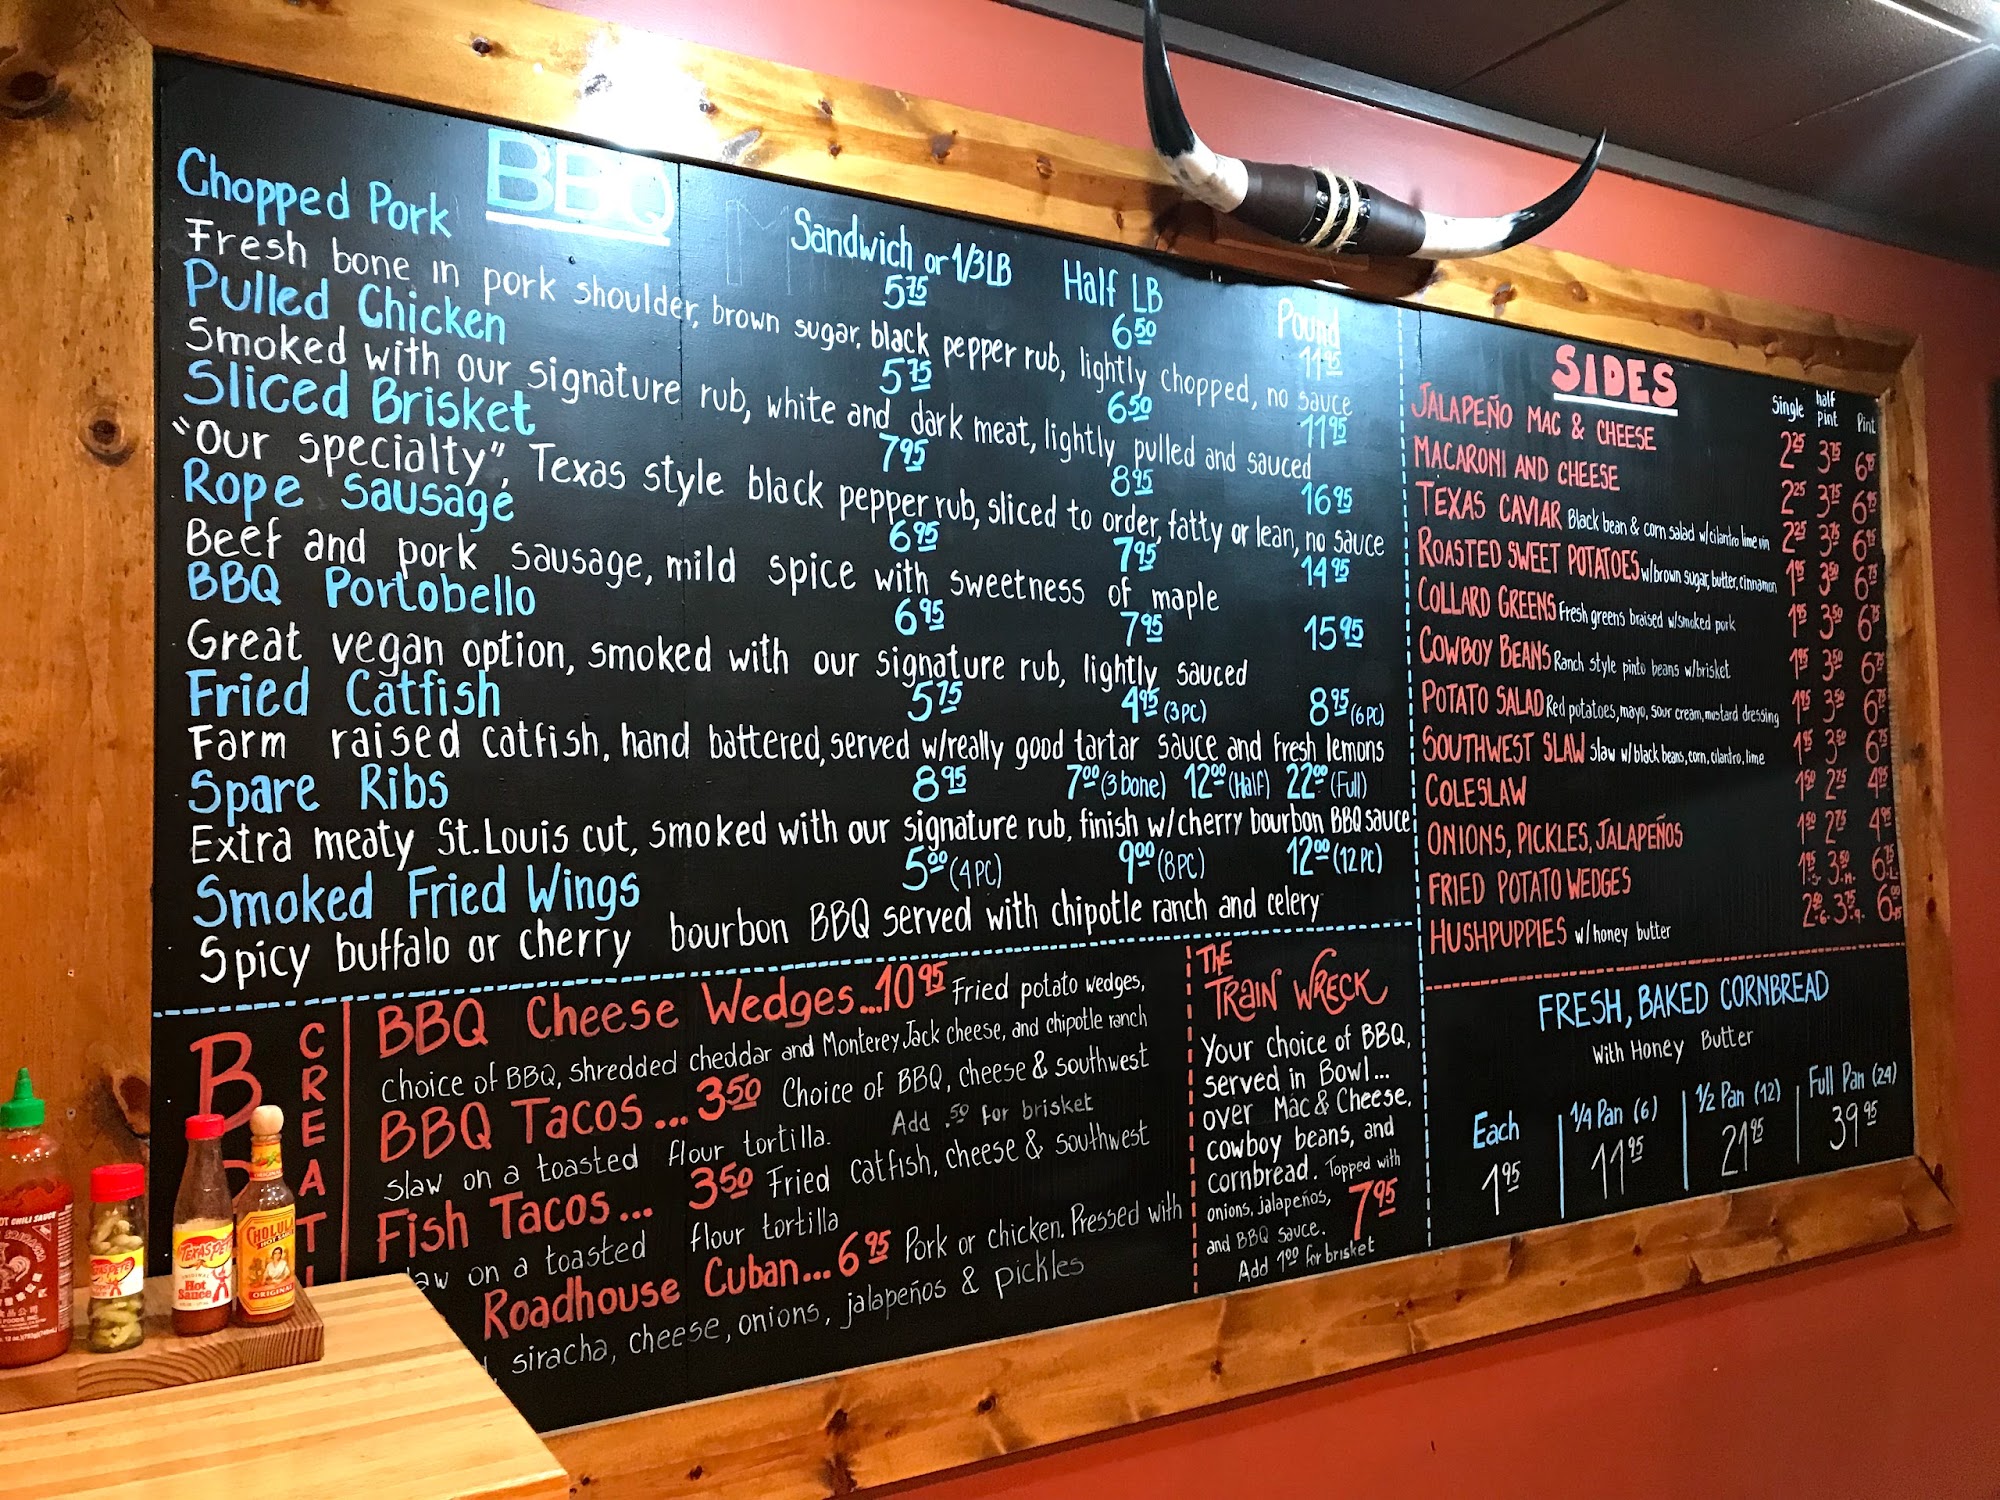 BBQ
Sandwich or 1/3 LB Half LB Pound
Chopped Pork 5.75 6.50 11.95
Fresh bone in pork shoulder, brown sugar, black pepper rub, lightly chopped, no sauce
Pulled Chicken 5.75 6.50 11.95
Smoked with our signature rub, white and dark meat, lightly pulled and sauced
Sliced Brisket 7.95 8.95 16.95
"Our specialty", Texas style black pepper rub, sliced to order, fatty or lean, no sauce
Rope Sausage 6.95 7.95 14.95
Beef and pork sausage, mild spice with sweetness of maple
BBQ Portobello 6.95 7.95 15.95
Great vegan option, smoked with our signature rub, lightly sauced
Fried Catfish 5.75 4.95 (3PC) 8.95 (6PC)
Farm raised catfish, hand battered, served w/really good tartar sauce and fresh lemons
Spare Ribs 8.95 7.00 (3 bone) 12.00 (Half) 22.00 (Full)
Extra meaty St. Louis cut, smoked with our signature rub, finish w/cherry bourbon BBQ sauce
Smoked Fried Wings 5.00 (4PC) 9.00 (8PC) 12.00 (12PC)
Spicy buffalo or cherry bourbon BBQ served with chipotle ranch and celery
B
CREATI
BBQ Cheese Wedges...10.95 Fried potato wedges,
choice of BBQ, shredded cheddar and Monterey Jack cheese, and chipotle ranch
BBQ Tacos...3.50 Choice of BBQ, cheese & southwest
slaw on a toasted flour tortilla. Add .50 for brisket
Fish Tacos... 3.50 Fried catfish, cheese & southwest
slaw on a toasted flour tortilla
Roadhouse Cuban...6.95 Pork or chicken. Pressed with
siracha, cheese, onions, jalapeños & pickles
THE
TRAIN WRECK
Your choice of BBQ,
served in Bowl...
over Mac & Cheese,
cowboy beans, and
cornbread. Topped with
onions, jalapeños,
and BBQ sauce. 7.95
Add 1.00 for brisket
SIDES
Single half pint Pint
JALAPEÑO MAC & CHEESE 2.25 3.75 6.95
MACARONI AND CHEESE 2.25 3.75 6.95
TEXAS CAVIAR Black bean & corn salad w/cilantro lime vin 2.25 3.75 6.95
ROASTED SWEET POTATOES w/brown sugar, butter, cinnamon 1.95 3.50 6.75
COLLARD GREENS Fresh greens braised w/smoked pork 1.95 3.50 6.75
COWBOY BEANS Ranch style pinto beans w/brisket 1.95 3.50 6.75
POTATO SALAD Red potatoes, mayo, sour cream, mustard dressing 1.95 3.50 6.75
SOUTHWEST SLAW Slaw w/black beans, corn, cilantro, lime 1.95 3.50 6.75
COLESLAW 1.50 2.75 4.95
ONIONS, PICKLES, JALAPEÑOS 1.50 2.75 4.95
FRIED POTATO WEDGES 1.95 S. 3.50 M. 6.75 L.
HUSHPUPPIES w/honey butter 2.50 6. 3.75 9. 6.00
FRESH, BAKED CORNBREAD
With Honey Butter
Each 1/4 Pan (6) 1/2 Pan (12) Full Pan (24)
1.95 11.95 21.95 39.95
HOT CHILI SAUCE
TEXAS PETE
ORIGINAL
Hot
Sauce
CHOLULA
HOT SAUCE
ORIGINAL